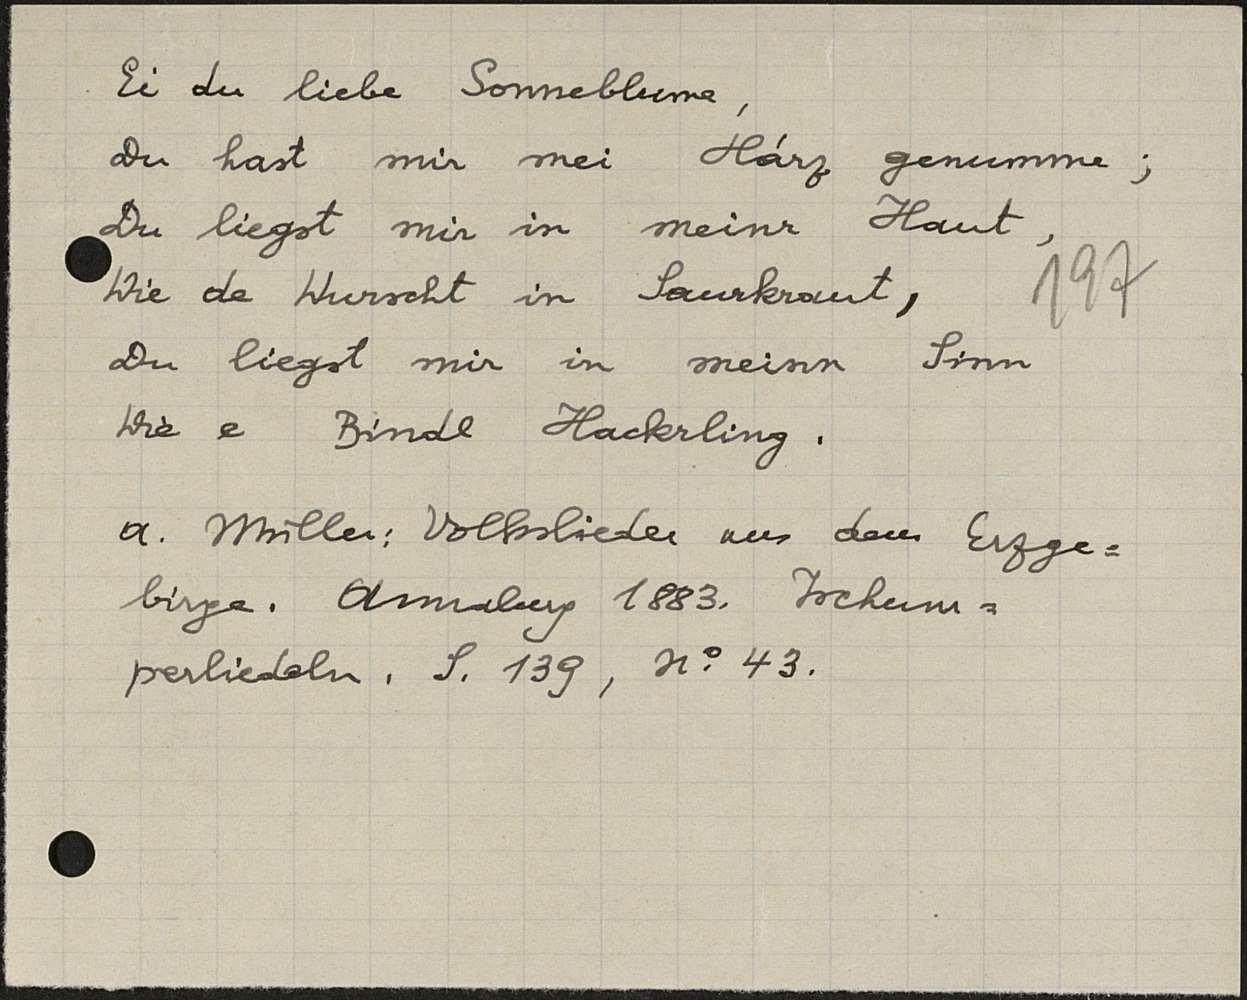 Ei du liebe Sonneblume,
Du hast mir mei Hárz genumme;
Du liegst mir in meinr Haut,
Wie de Wurscht in Saurkraut,
197
Du liegst mir in meinn Sinn
Wie e Bindl Hackrling.
A. Müller: Volkslieder aus dem Erzge=
birge. Annaberg 1883. Tschum=
perliedeln. S. 139, No. 43.